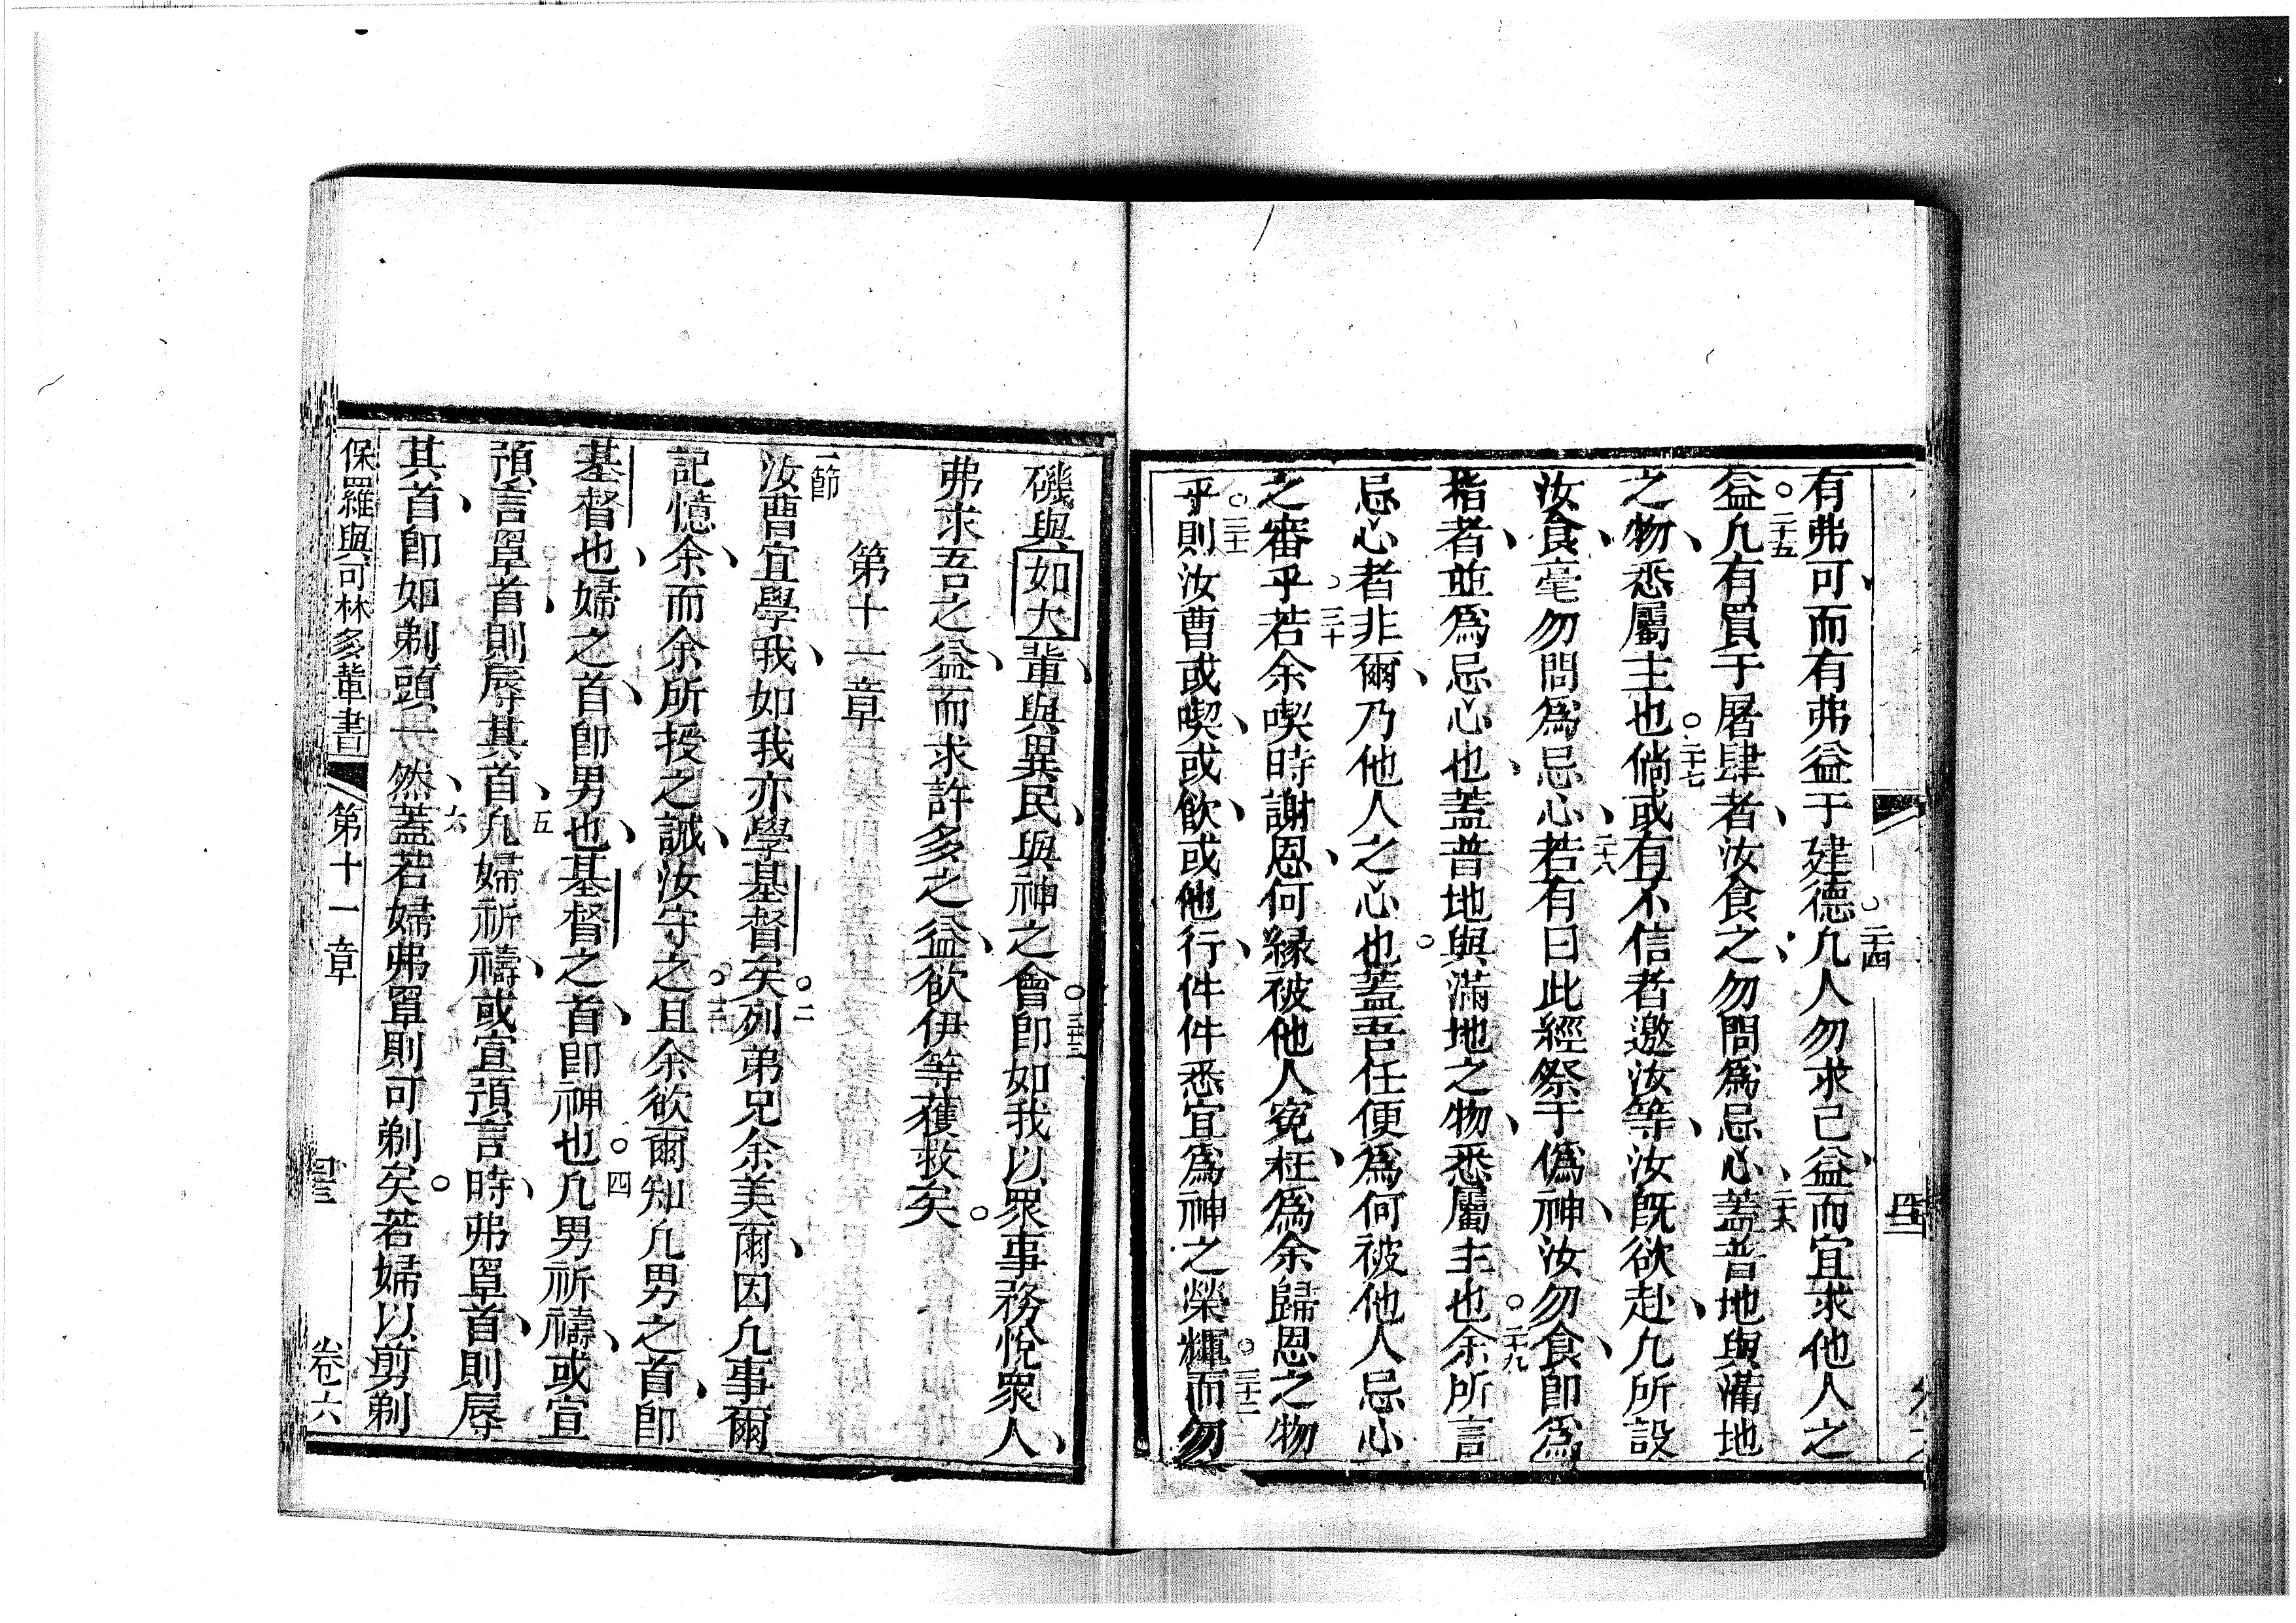 有弗可、而有弗益于建德。二十四凡人勿求己益、而宜求他人之
益。二十五凡有買于屠肆者、汝食之、勿問為忌心、二十六蓋普地與滿地
之物、悉屬主也。二十七倘或有不信者邀汝等、汝既欲赴、凡所設
汝食、毫勿問為忌心、二十八若有曰此經祭于偽神、汝勿食、即為
指者、並為忌心也、蓋普地與滿地之物、悉屬主也。二十九余所言
忌心者非爾、乃他人之心也。蓋吾任便為何被他人忌心
之審乎。三十若余喫時謝恩、何緣被他人冤枉、為余歸恩之物
乎。三十一則汝曹或喫、或飲、或他行、件件悉宜為神之榮輝。三十二而勿
磯與如大輩、與異民、與神之會。三十三即如我以眾事務悅眾人、
弗求吾之益、而求許多之益、欲伊等獲救矣。
第十一章
一節汝曹宜學我、如我亦學基督矣。二列弟兄余美爾、因凡事爾
記憶余、而余所授之誡、汝守之。三節且余欲爾知凡男之首、即
基督也、婦之首、即男也、基督之首、即神也。四凡男祈禱、或宣
預言罩首、則辱其首、五凡婦祈禱、或宣預言時、弗罩首、則辱
其首、即如剃頭一然、六蓋若婦弗罩則可剃矣。若婦以剪剃
保羅與可林多輩書 第十一章 卷六